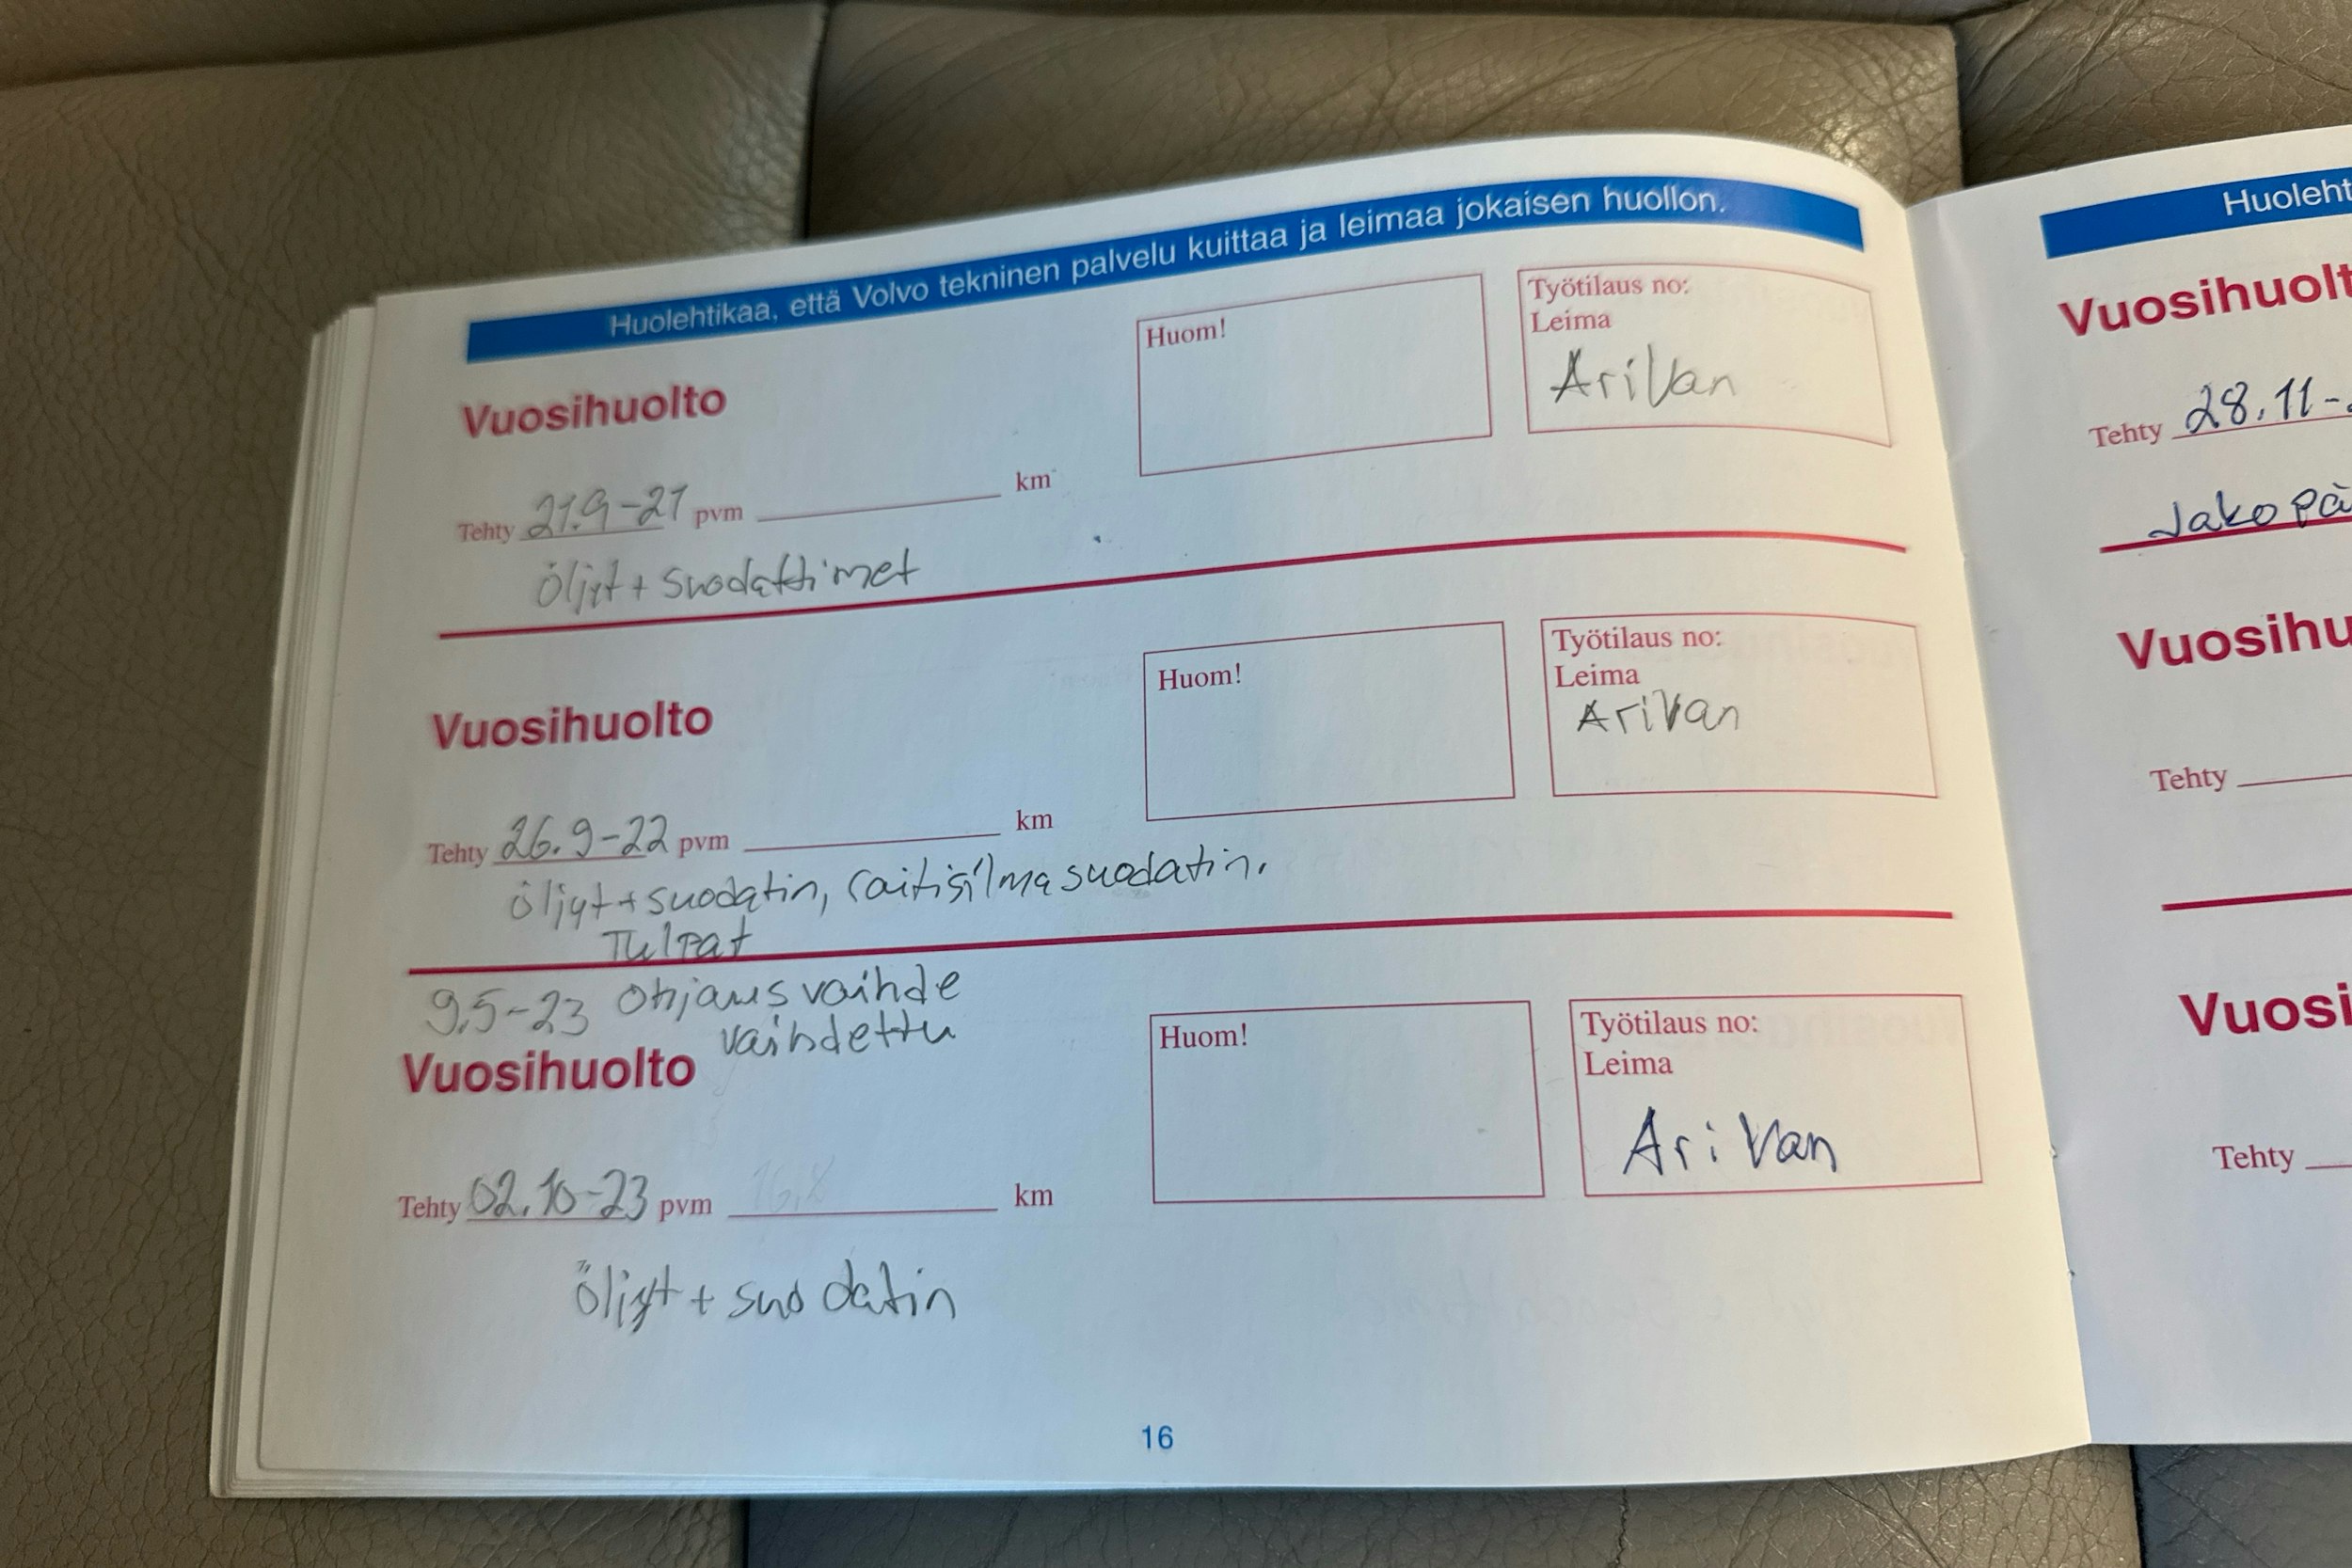 Huolehtikaa, että Volvo tekninen palvelu kuittaa ja leimaa jokaisen huollon.
Vuosihuolto
Huom!
Työtilaus no:
Leima
AriVan
Tehty 21.9-21 pvm km
öljyt + suodattimet
Vuosihuolto
Huom!
Työtilaus no:
Leima
AriVan
Tehty 26.9-22 pvm km
öljyt + suodatin, raitisilmasuodatin.
Tulpat
9.5-23 Ohjaus vaihde
vaihdettu
Vuosihuolto
Huom!
Työtilaus no:
Leima
Ari Van
Tehty 02.10-23 pvm km
öljyt + suodatin
16
Huoleht
Vuosihuolt
Tehty 28.11-
Jakopä
Vuosihu
Tehty
Vuosi
Tehty